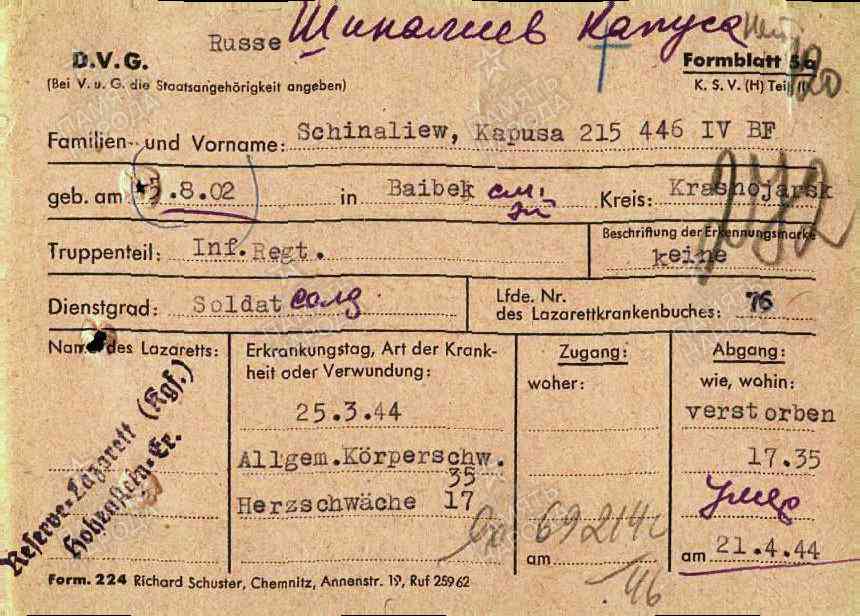 Russe Шиналиев Капуса
D.V.G. Formblatt 5a
(Bei V. u. G. die Staatsangehörigkeit angeben) K. S. V. (H) Teil
120
Familien- und Vorname: Schinaliew, Kapusa 215 446 IV BF
geb. am 5.8.02 in Baibek Kreis: Krasnojarsk
272
Truppenteil: Inf.Regt. Beschriftung der Erkennungsmarke
keine
Dienstgrad: Soldat солд Lfde. Nr.
des Lazarettkrankenbuches: 76
Name des Lazaretts: Erkrankungstag, Art der Krank-
heit oder Verwundung: Zugang: Abgang:
woher: wie, wohin:
25.3.44 verstorben
Allgem.Körperschw. 17.35
35
Herzschwäche 17 умер
Reserve-Lazarett (Kgf.)
Hohenstein-Er.
am am 21.4.44
46
Form. 224 Richard Schuster, Chemnitz, Annenstr. 19, Ruf 25962